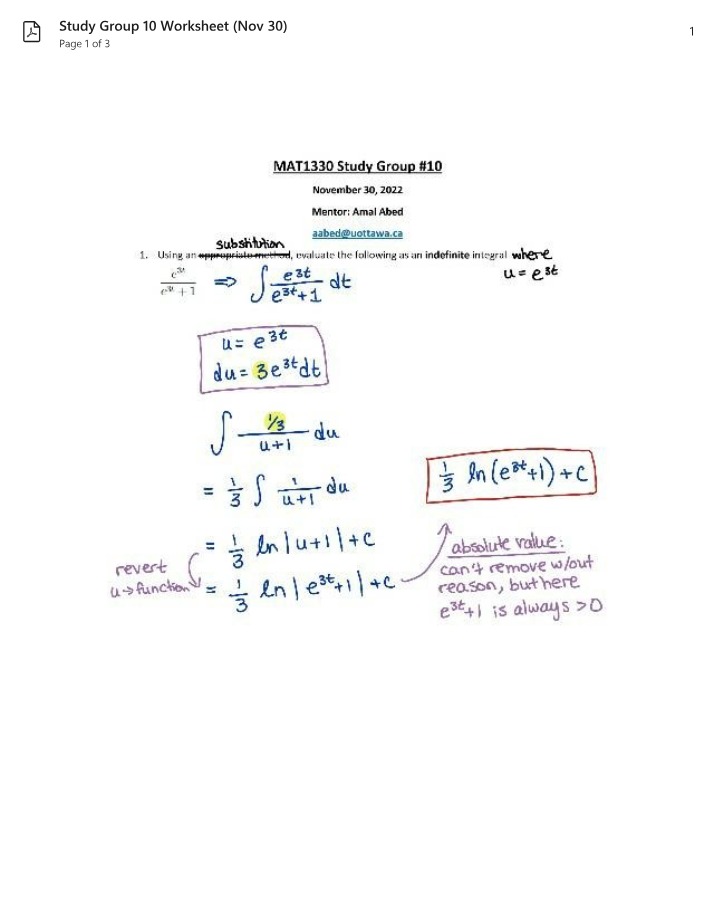 Study Group 10 Worksheet (Nov 30)
Page 1 of 3
1
MAT1330 Study Group #10
November 30, 2022
Mentor: Amal Abed
aabed@uottawa.ca
substitution
1. Using an appropriate method, evaluate the following as an indefinite integral where
u = e^3t
e^3t / (e^3t + 1) ⇒ ∫ e^3t / (e^3t + 1) dt
u = e^3t
du = 3e^3t dt
∫ (1/3) / (u+1) du
= 1/3 ∫ 1/(u+1) du
1/3 ln(e^3t+1) + C
= 1/3 ln|u+1| + C
revert
u → function
= 1/3 ln|e^3t+1| + C
absolute value:
can't remove w/out
reason, but here
e^3t+1 is always >0